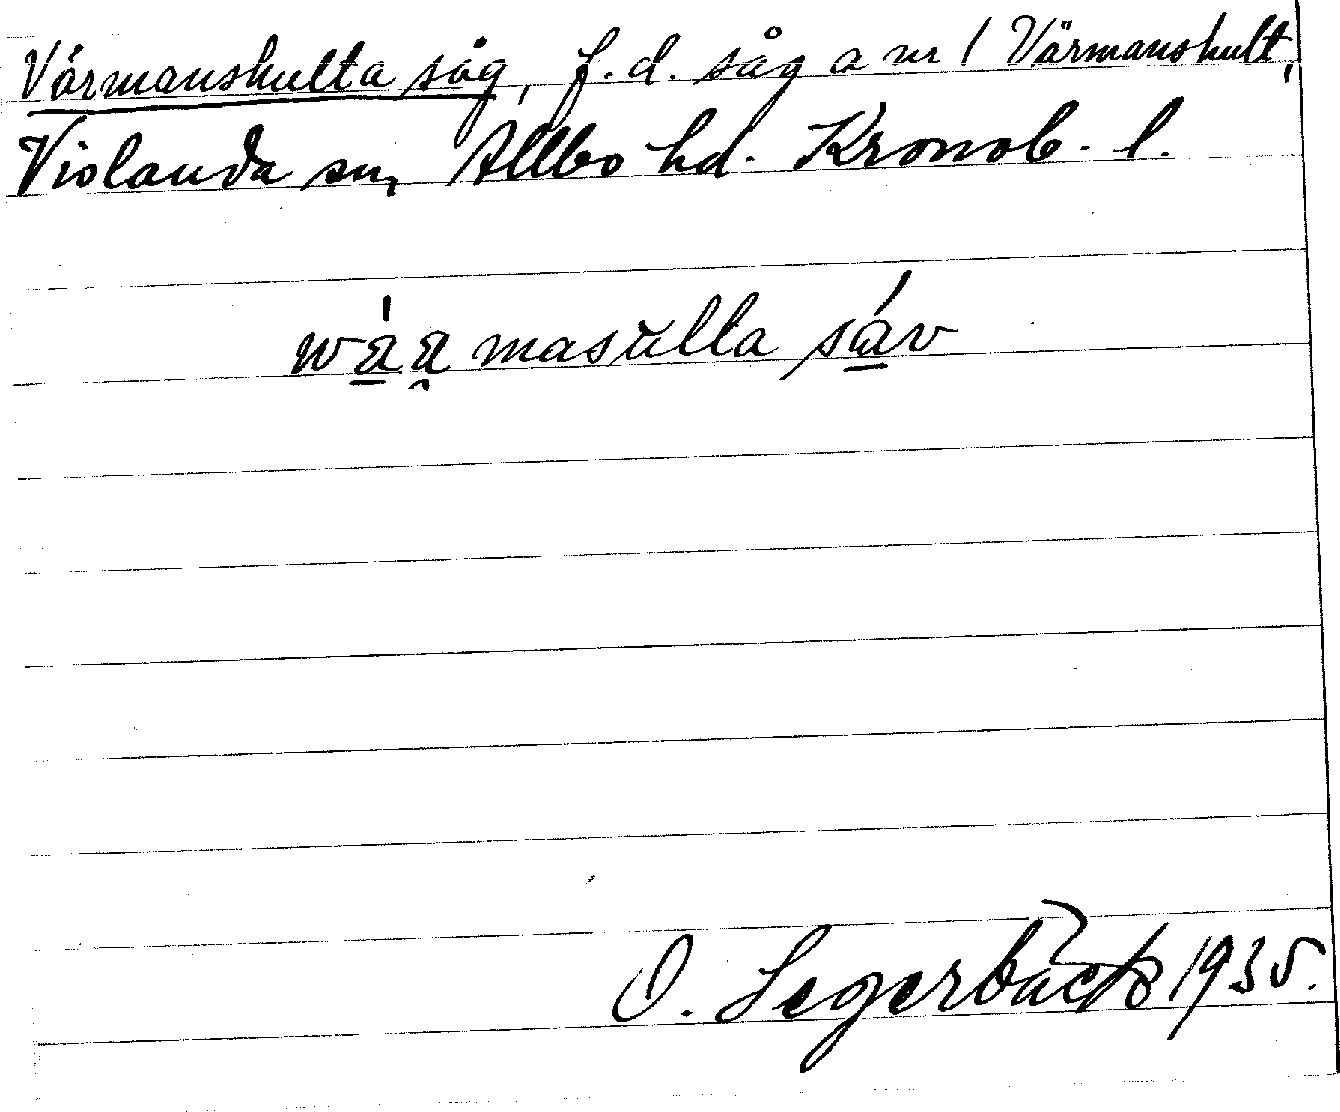 Värmanshulta såg, f.d. såg a nr 1 Värmanshult,
Vislanda sn, Allbo hd. Kronob. l.
masulla sáv
O. Segerbäck 1935.